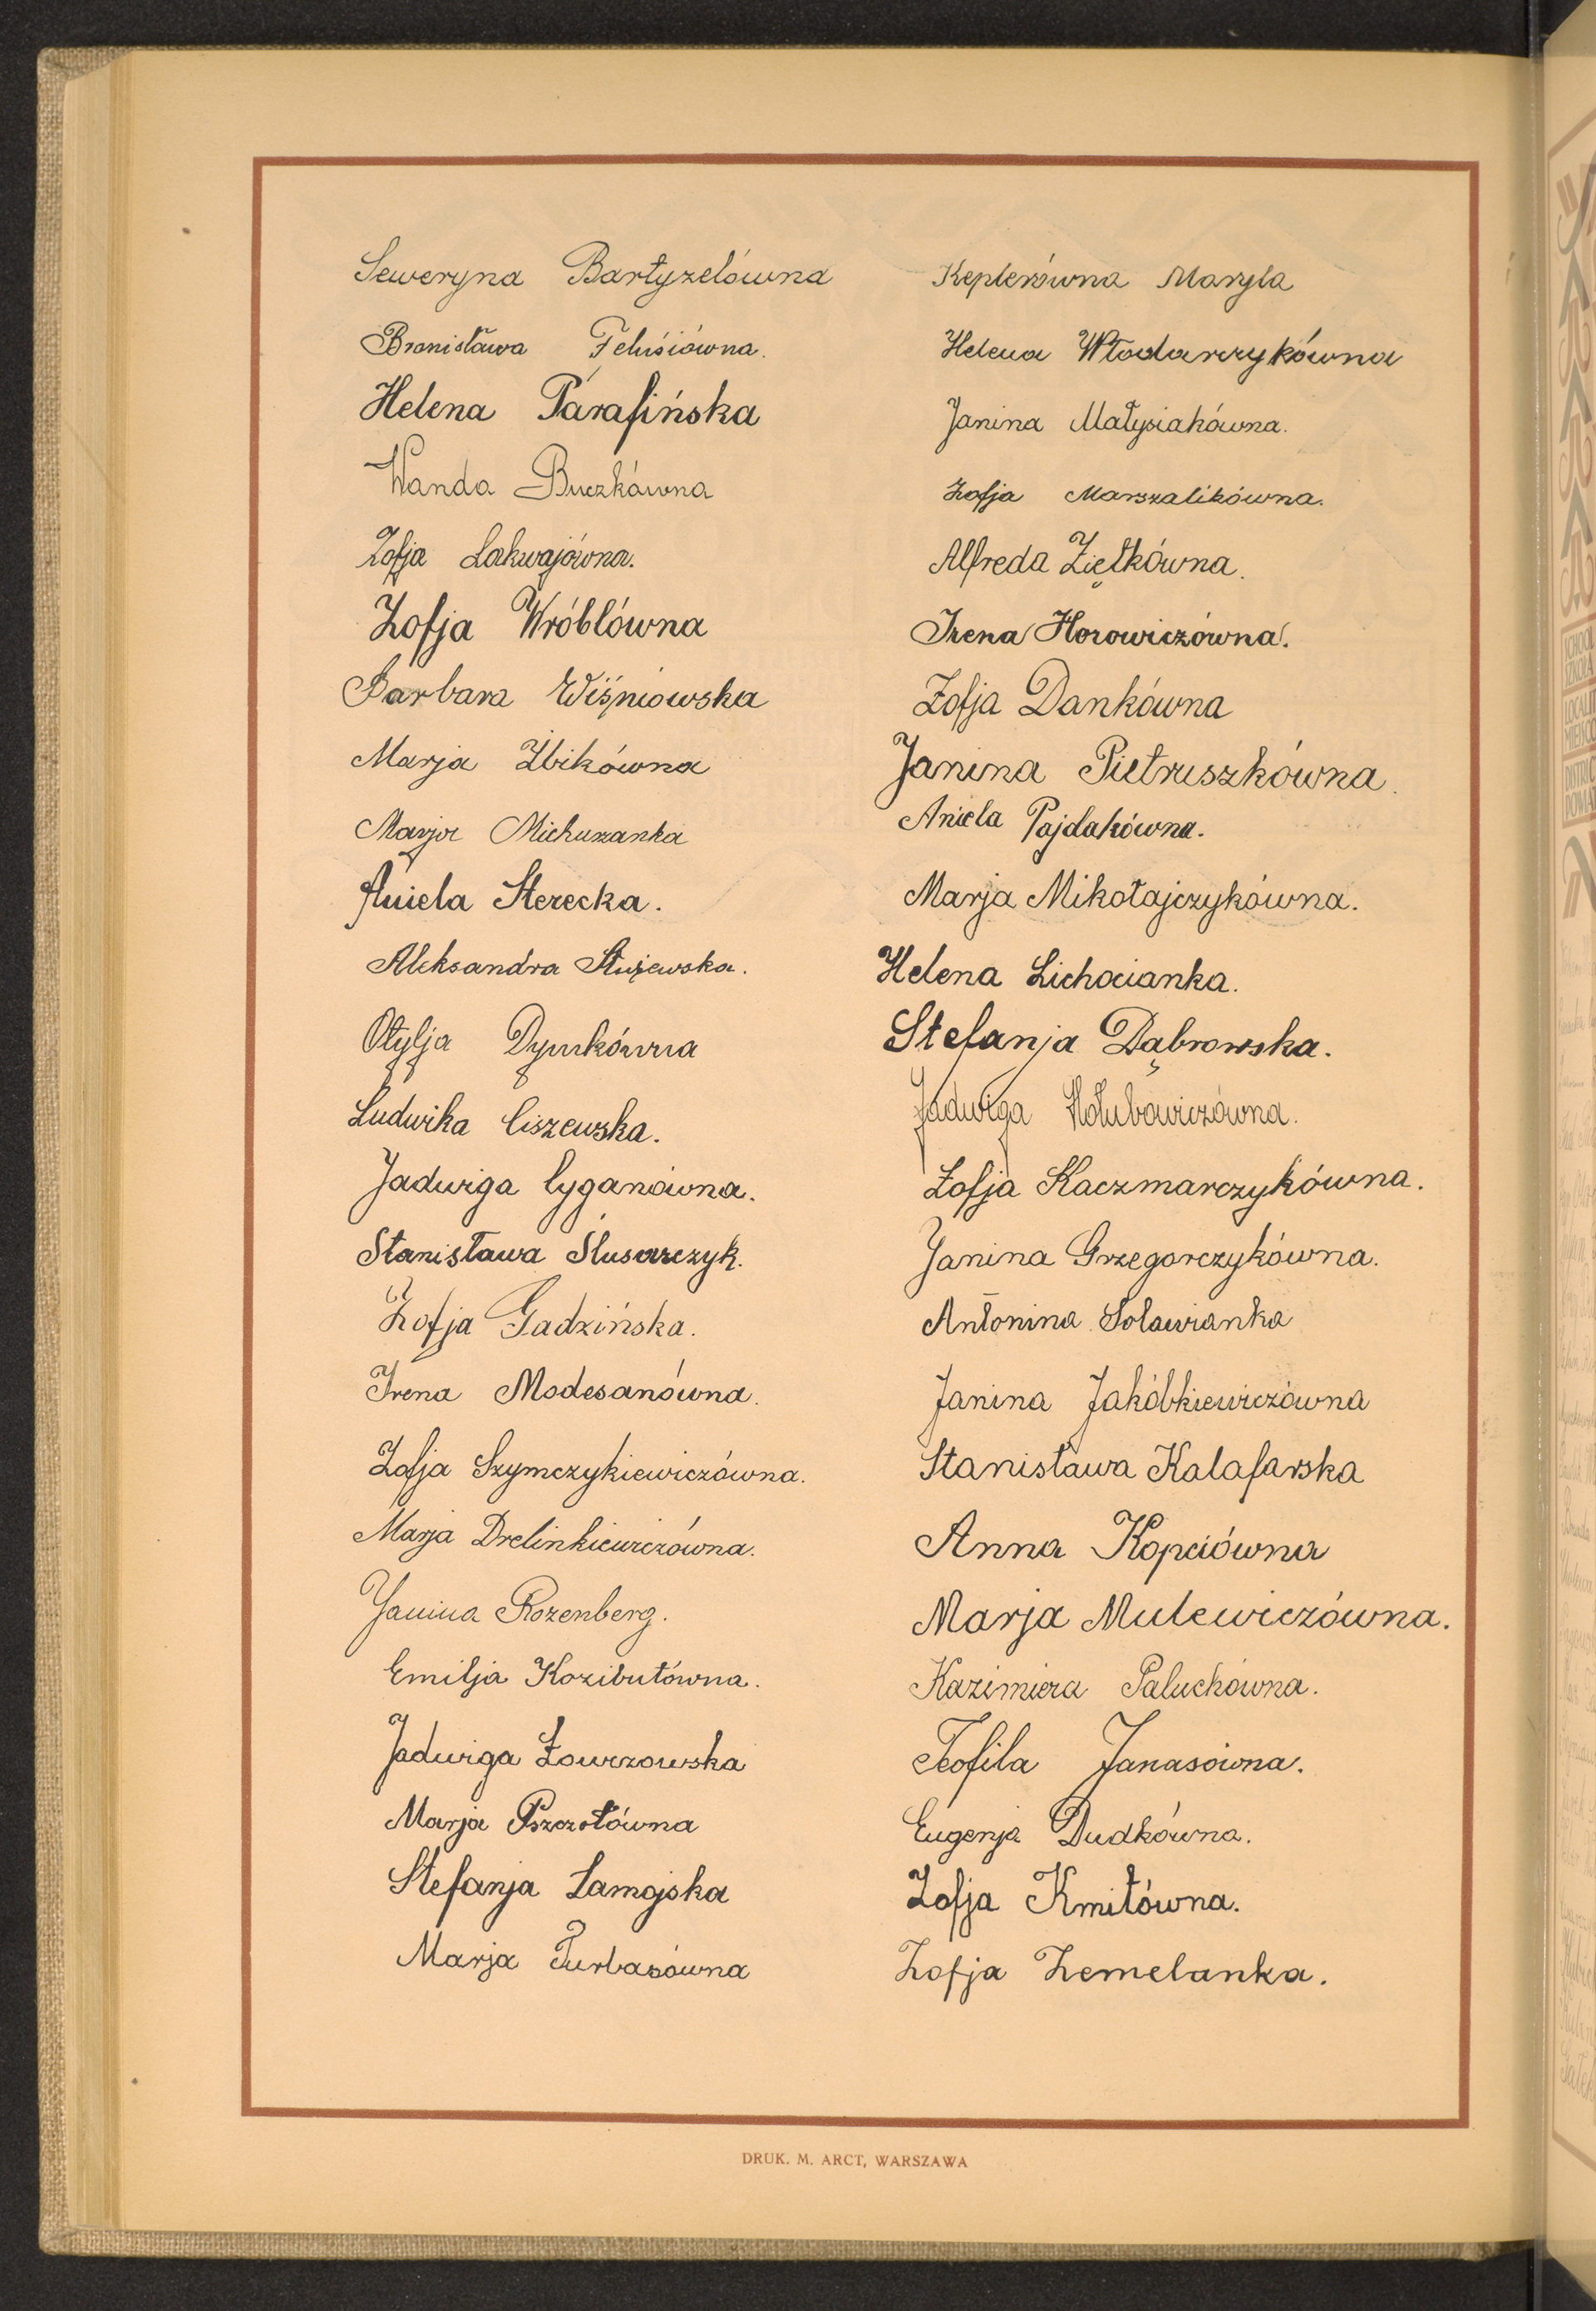 Seweryna Bartyzelówna
Bronisława Felusiówna.
Helena Parafińska
Wanda Buczkówna
Zofja Lakwajówna.
Zofja Wróblówna
Barbara Wiśniowska
Marja Żbikówna
Marja Michurzanka
Aniela Sterecka.
Aleksandra Służewska.
Otylja Dymkówna
Ludwika Ciszewska.
Jadwiga Cyganówna.
Stanisława Ślusarczyk.
Zofja Gadzińska.
Irena Modesanówna.
Zofja Szymczykiewiczówna.
Marja Drelinkiewiczówna.
Janina Rozenberg.
Emilja Kozibutówna.
Jadwiga Łowczowska
Marja Pszczołówna
Stefanja Zamojska
Marja Turbasówna
Keplerówna Maryla
Helena Włodarczykówna
Janina Małysiakówna.
Zofja Marszalikówna.
Alfreda Ziętkówna.
Irena Horowiczówna.
Zofja Dankówna
Janina Pietruszkówna.
Aniela Pajdakówna.
Marja Mikołajczykówna.
Helena Lichocianka.
Stefanja Dąbrowska.
Jadwiga Hołubowiczówna.
Zofja Kaczmarczykówna.
Janina Grzegorczykówna.
Antonina Solawianka
Janina Jakóbkiewiczówna
Stanisława Kalafarska
Anna Kopciówna
Marja Mulewiczówna.
Kazimiera Paluchówna.
Teofila Janasówna.
Eugenja Dudkówna.
Zofja Kmitówna.
Zofja Zemelanka.
DRUK. M. ARCT, WARSZAWA